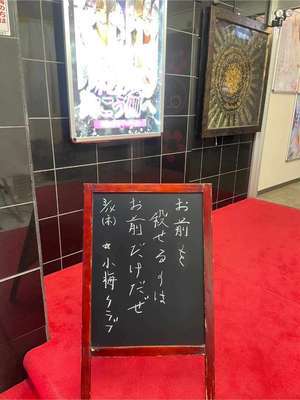 お前を
殺せるのは
お前だけだぜ
(木) ☆小梅クラブ